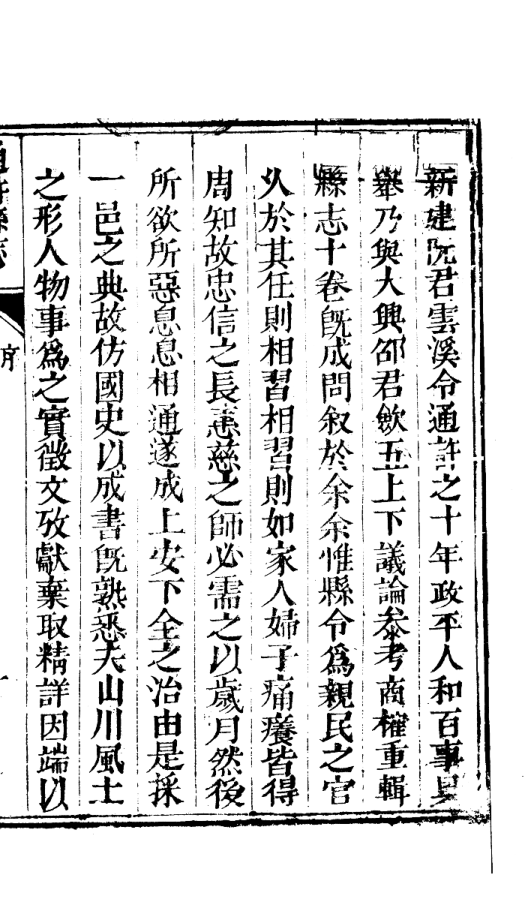 新建阮君雲溪令通許之十年政平人和百事具
舉乃與大興邵君歛五上下議論叅考商榷重輯
縣志十卷旣成問叙於余余惟縣令爲親民之官
久於其任則相習相習則如家人婦子痛癢皆得
周知故忠信之長惠慈之師必需之以歲月然後
所欲所惡息息相通遂成上安下全之治由是採
一邑之典故仿國史以成書旣熟悉夫山川風土
之形人物事爲之實徵文攷獻棄取精詳因端以
通許縣志
序
一